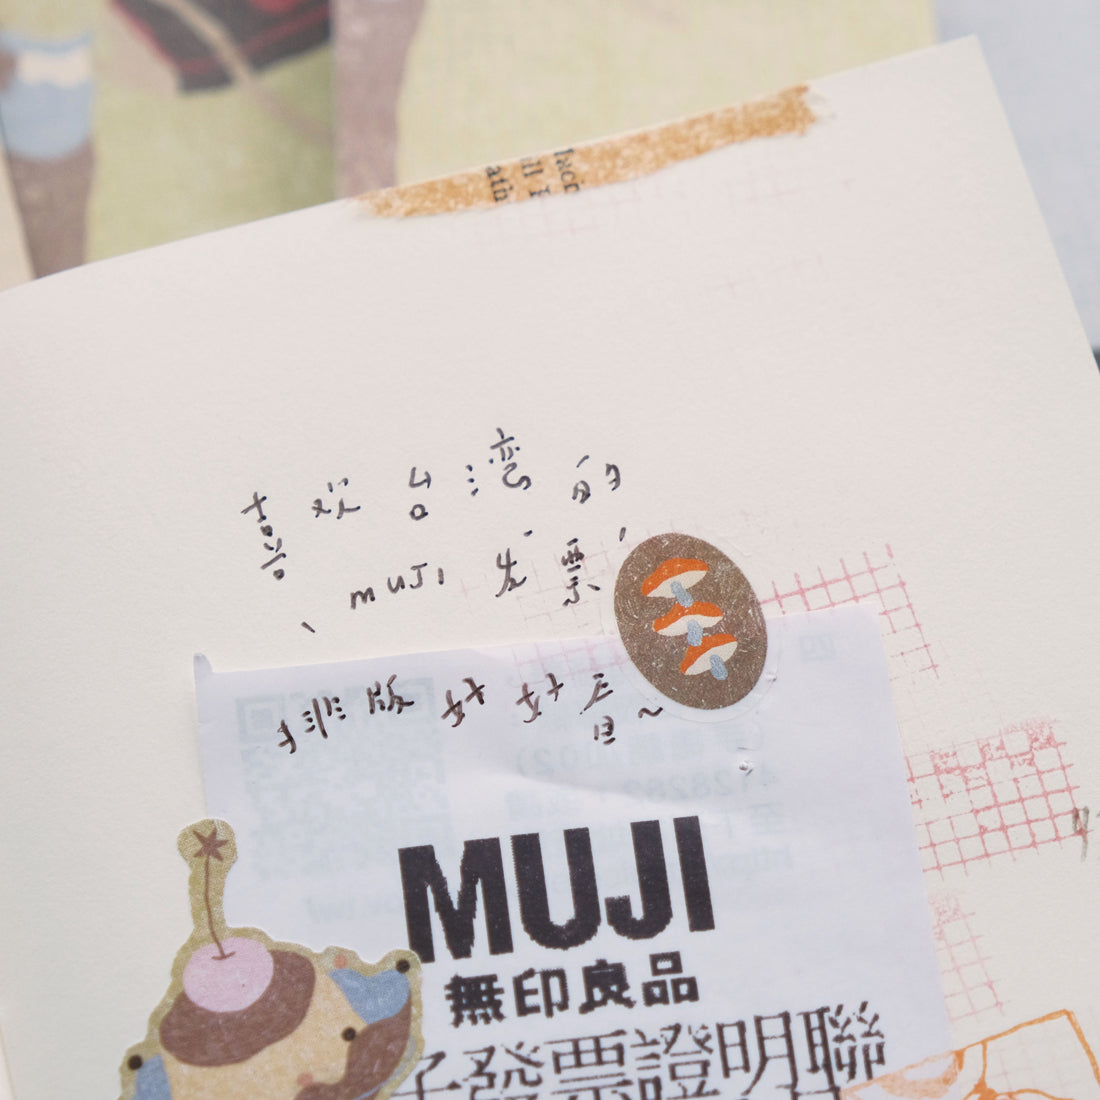 喜欢台湾的
MUJI 发票，
排版好好看~
MUJI
無印良品
子發票證明聯